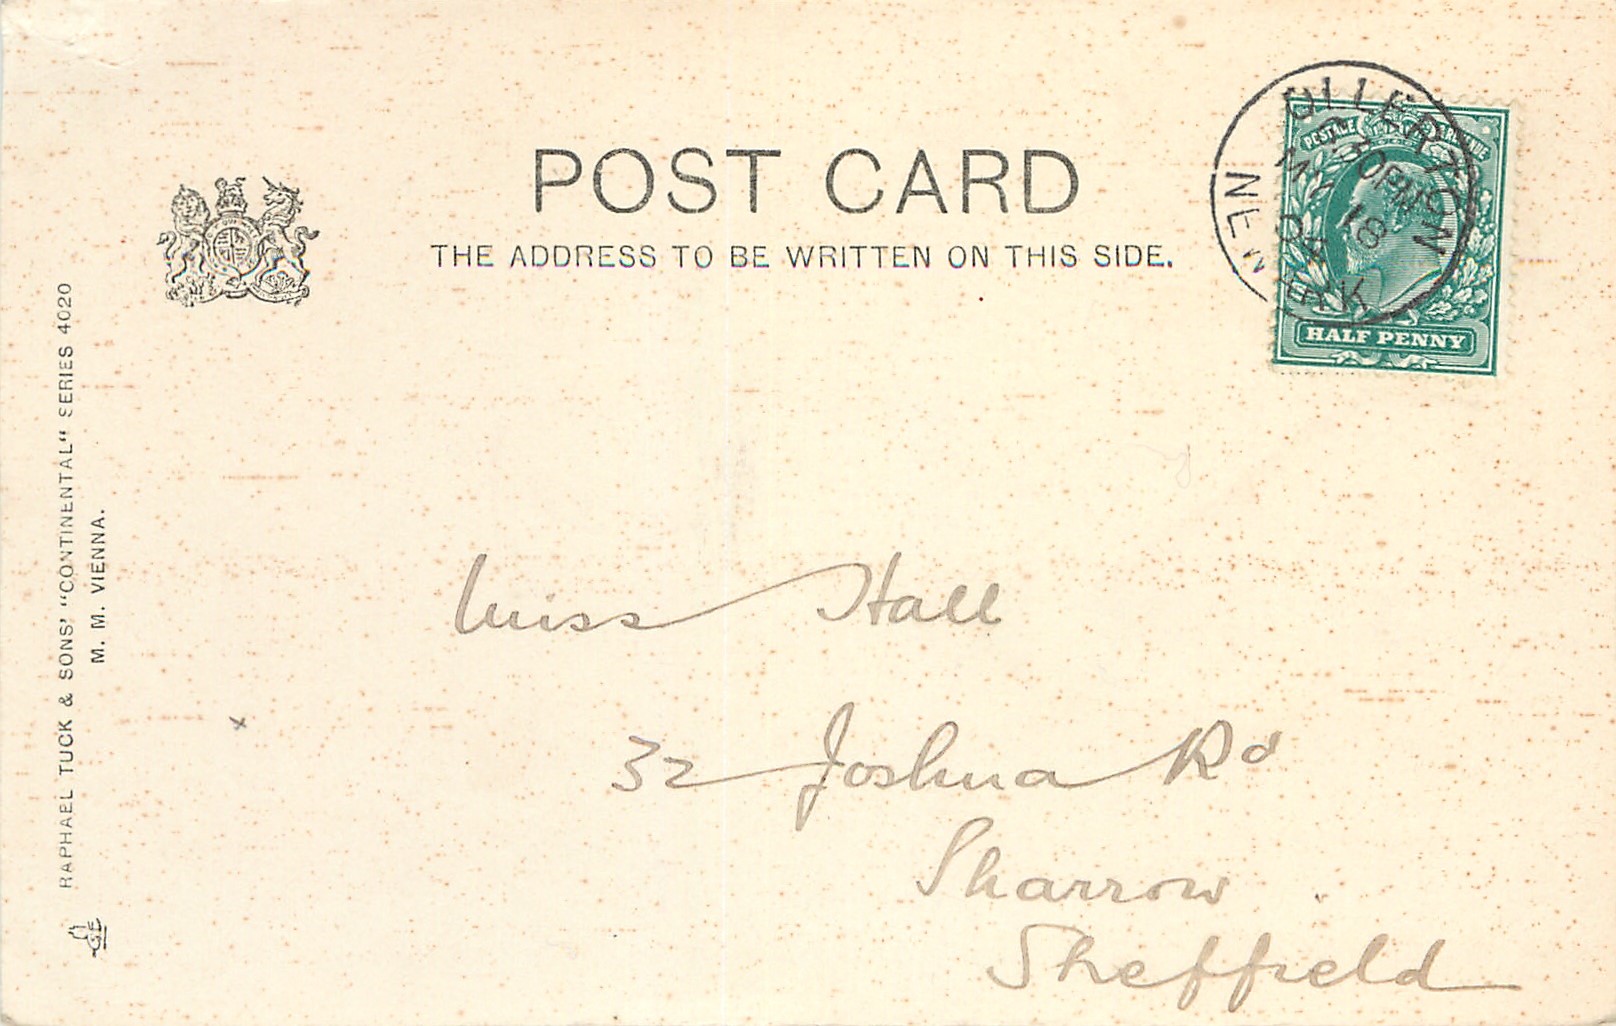 POST CARD
THE ADDRESS TO BE WRITTEN ON THIS SIDE.
OLLERTON
NEWARK
18
04
POSTAGE REVENUE
HALF PENNY
RAPHAEL TUCK & SONS' "CONTINENTAL" SERIES 4020
M. M. VIENNA.
Miss Hall
32 Joshua Rd
Sharrow
Sheffield